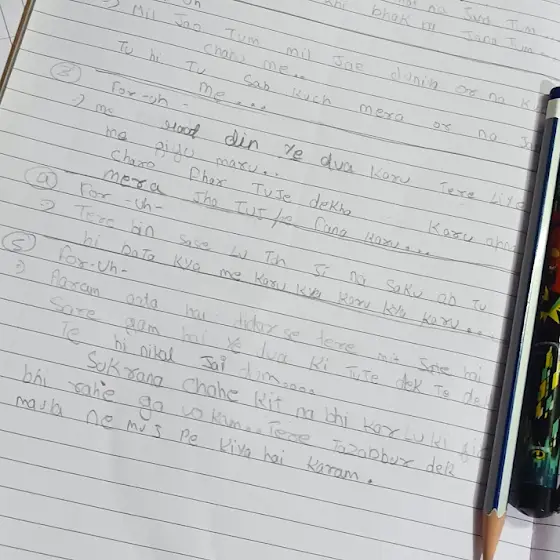 Mil Jao Tum mil Jae duniya or na k
chahu me..
Tu hi Tu sab kuch mera or na Ja
me....
(3) For-uh-
→ me din ye dua karu Tere liye
ma jiyu maru.. karu
charo Phar TuJe dekho
mera Jha TuJ pe karu....
(4) For-uh-
→ Tere bin sase lu Toh Ji na saku ab Tu
hi baTa kya me karu kya karu kya karu...
(5) For-uh-
→ Aaram aata hai didar se tere mit Jate hai
Sare gam hai ye dua ki TuJe dek Te de
Te hi nikal Jai dum....
Sukrana chahe kit na bhi kar lu ki
bhi rahe ga vo kum.. Tere dek
maula ne muJ Pe kiya hai karam.